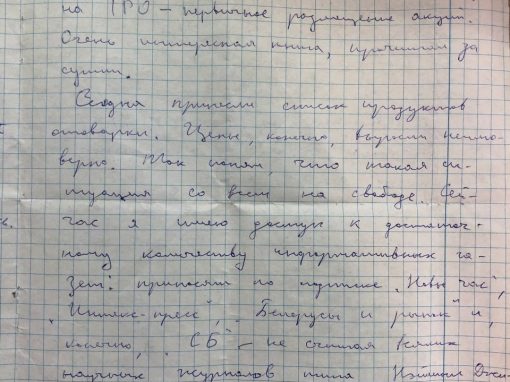 на IPO – первичное размещение акций.
Очень интересная книга, прочитал за
сутки.
Сегодня принесли список продуктов
отоварки. Цены, конечно, выросли неимо-
верно. Так понял, что такая си-
туация со всем на свободе. Сей-
час я имею доступ к достаточ-
ному количеству информативных га-
зет: приносят по подписке „Новы час",
„Интекс-пресс", „Белорусы и рынок" и,
конечно, „СБ" – не считая всяких
научных журналов типа Нэшнл Джи-